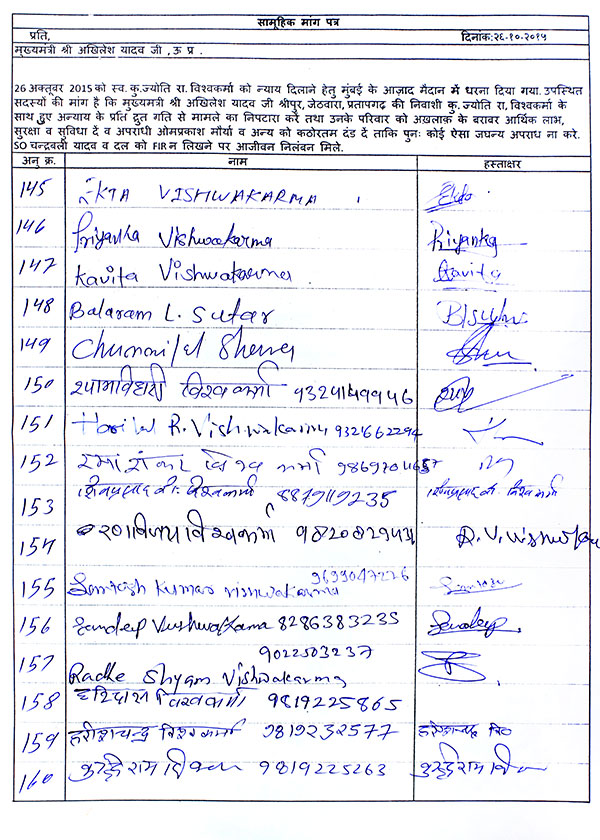 सामूहिक मांग पत्र
प्रति, दिनांक:२६-१०-२०१५
मुख्यमंत्री श्री अखिलेश यादव जी ,ऊ प्र .
26 अक्तूबर 2015 को स्व. कु.ज्योति रा. विश्वकर्मा को न्याय दिलाने हेतु मुंबई के आज़ाद मैदान में धरना दिया गया. उपस्थित
सदस्यों की मांग है कि मुख्यमंत्री श्री अखिलेश यादव जी श्रीपुर, जेठवारा, प्रतापगढ़ की निवाशी कु. ज्योति रा, विश्वकर्मा के
साथ हुए अन्याय के प्रति द्रुत गति से मामले का निपटारा करें तथा उनके परिवार को अख़लाक़ के बराबर आर्थिक लाभ,
सुरक्षा व सुविधा दें व अपराधी ओमप्रकाश मौर्या व अन्य को कठोरतम दंड दें ताकि पुनः कोई ऐसा जघन्य अपराध ना करे.
SO चन्द्रवली यादव व दल को FIR न लिखने पर आजीवन निलंबन मिले.
अनु क्र. नाम हस्ताक्षर
145 EKTA VISHWAKARMA Ekta
146 Priyanka Vishwakarma Priyanka
147 Kavita Vishwakarma Kavita
148 Balaram L. Sutar
149
150 श्यामबिहारी विश्वकर्मा
151 Harilal R. Vishwakarma 9321662294
152 रमाशंकर विश्वकर्मा
153 विश्वकर्मा 8879119235
154 विश्वकर्मा R. V. Vishwa
155 Santosh Kumar Vishwakarma 9699047226
156 Sandeep Vishwakarma 8286383235 Sandeep
157 9022503237
Radhe Shyam Vishwakarma
158 हरिदास विश्वकर्मा 9819225865
159 हरिश्चन्द्र विश्वकर्मा 9819232577
160 राम 9819225263 राम